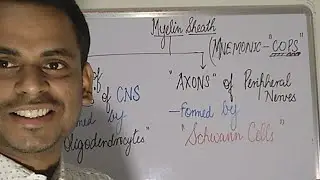 Myelin Sheath
(MNEMONIC-"COPS"
of
of CNS
"AXONS" of Peripheral
Nerves
med by
Oligodendrocytes"
-Formed by
"Schwann Cells"